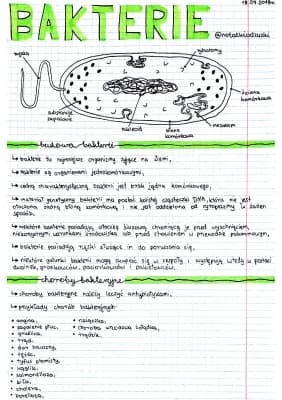 BAKTERIE
18.04.2018r.
@notatkiodzuzki
rzęska
rybosomy
ściana komórkowa
substancje zapasowe
nukleoid
błona komórkowa
mezosom
budowa bakterii
↳ bakterie to najmniejsze organizmy żyjące na Ziemi,
↳ bakterie są organizmami jednokomórkowymi,
↳ cechą charakterystyczną bakterii jest brak jądra komórkowego,
↳ materiał genetyczny bakterii ma postać kolistej cząsteczki DNA, która nie jest
otoczona żadną błoną komórkową, i nie jest oddzielona od cytoplazmy w żaden
sposób,
↳ niektóre bakterie posiadają otoczkę śluzową chroniącą je przed wyschnięciem,
niekorzystnymi warunkami środowiska lub przed zniszczeniem w przewodzie pokarmowym,
↳ bakterie posiadają rzęski służące im do poruszania się,
↳ niektóre gatunki bakterii mogą skupiać się w zespoły i występują wtedy w postaci
dwoinek, gronkowców, paciorkowców i pakietowców,
choroby bakteryjne
↳ choroby bakteryjne należy leczyć antybiotykami,
↳ przykłady chorób bakteryjnych:
• angina,
• zapalenie płuc,
• gruźlica,
• trąd,
• dur brzuszny,
• tężec,
• tyfus plamisty,
• wąglik,
• salmonelloza,
• kiła,
• cholera,
• borelioza,
• rzeżączka,
• choroba wrzodowa żołądka,
• trądzik.